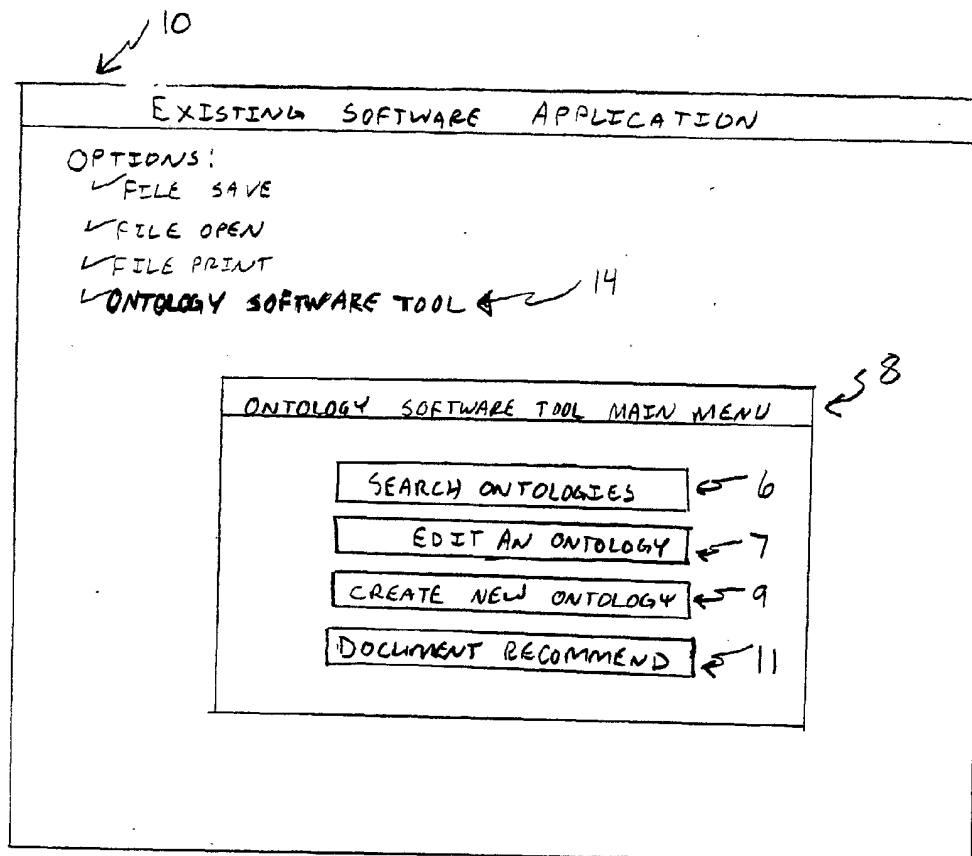 10
EXISTING SOFTWARE APPLICATION
OPTIONS:
FILE SAVE
FILE OPEN
FILE PRINT
ONTOLOGY SOFTWARE TOOL 14
8
ONTOLOGY SOFTWARE TOOL MAIN MENU
SEARCH ONTOLOGIES 6
EDIT AN ONTOLOGY 7
CREATE NEW ONTOLOGY 9
DOCUMENT RECOMMEND 11